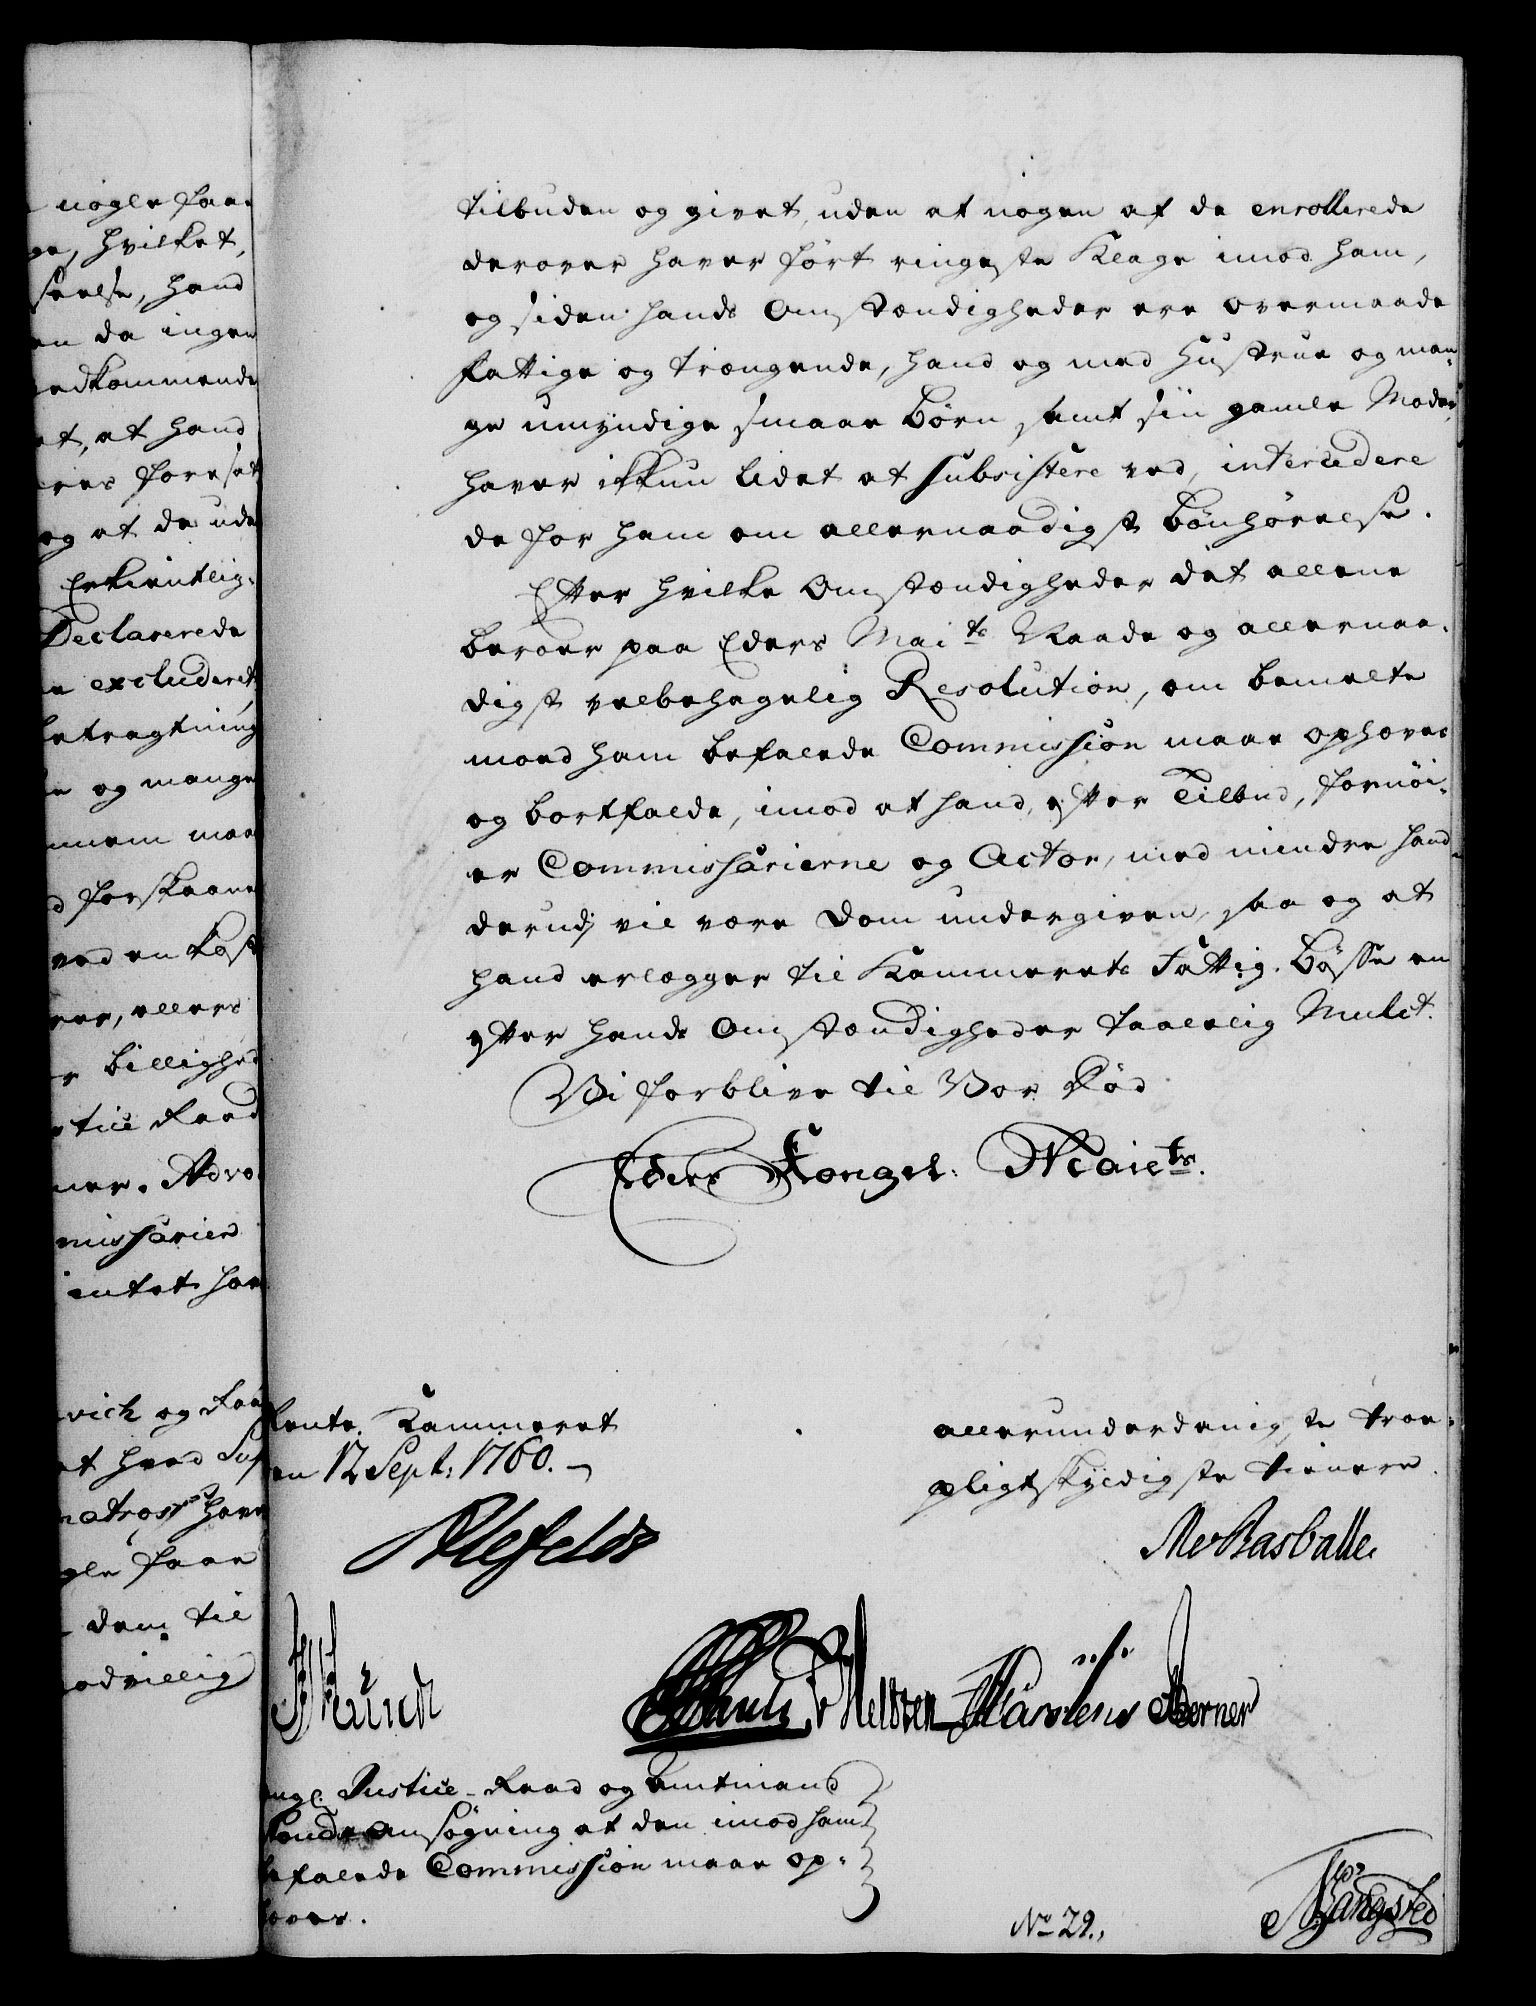 nogle faa-
ge, hvilket,
seelse, hand
en da ingen
vedkommende
et, at hand
og at de ude
Erkientlig-
Declarerede
excluderet
betragtning
og mange
maa
forskaane
ved en kost
eller
billighed
tice Raad
ner. Advo
missarier
intet har
vich og
et hvad
matross have
gle faae
dem til
odvillig
tilbuden og givet, uden at nogen af de enrollerede
derover haver ført ringeste Klage imod ham,
og siden hands Omstændigheder ere overmaade
fattige og trængende, hand og med Hustrue og man-
ge umyndige smaae Børn, samt siin gamle Moder,
haver ikkun lidet at subsistere ved, intercedere
de for ham om allernaadigst Bönhörelse.
Efter hvilke Omstændigheder det allene
beroer paa Eders Maits Naade og allernaa-
digst velbehagelig Resolution, om bemelte
moed ham befalede Commission maae ophæves
og bortfalde, imod at hand, efter Tilbud, fornöi-
er Commissarierne og Actor, med mindre hand
derudj vil være Dom undergiven, saa og at
hand erlægger til Kammerets Fattig-Bösse en
efter hands Omstændigheder taalelig Mulct.
Vi forblive til Vor Död
Eders Kongel: Maiets.
Rente-Kammeret
en 12 Sept: 1760.
allerunderdanigste troe-
pligtskyldigste tienere
Alefeldt
Rasballe.
Künck
Helsten Karstens Berner
ongl. Justice-Raad og Amtmand
Ansögning at den imod ham
befalede Commission maae op-
hæves.
No 29.
Langsted